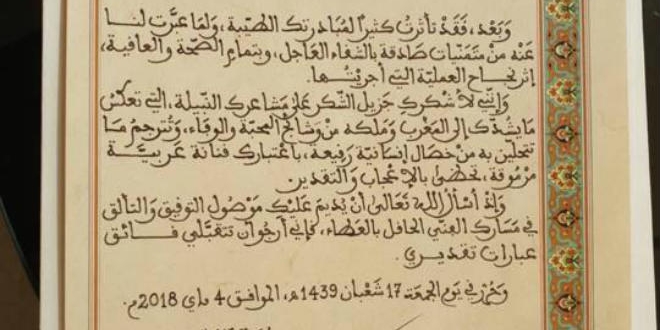 وَبَعْد، فَقَدْ تأثرتُ كثيرًا لمُبادرتك الطيّبة، ولمَا عبَّرت لنا
عنْه منْ متمنيات صَادقة بالشفاء العَاجل، وبتمام الصّحّة والعافية،
إثر نجاح العمليّة التي أجريْتُـها.
وَإنّني لأشكركِ جَزيل الشّكر عَلى مَشاعرك النّبيلة، التي تعكسُ
مَا يشدّك إلى المغربْ وَملكه منْ وَشائج المحبّة وَالوفاء، وتُترجمُ مَا
تتحلين به منْ خصَال إنسَانيّة رَفيعة، باعْتبارك فنانة عَربيّة
مرْمُوقة، تحْظىٰ بالإعْجاب وَالتقدير.
وَإذ أسْألُ اللهَ تعَالىٰ أنْ يُديمَ عَليْكِ مَوْصُول التوفيق وَالتألق
في مسَارك الفنّي الحَافل بالعَطاء، فإنّي أرجُو أن تتقبَّلي فائق
عبارات تقديري.
وحُرِّرَ في يَوم الجمعَة 17 شَعْبان 1439هـ، الموَافق 4 ماي 2018م.